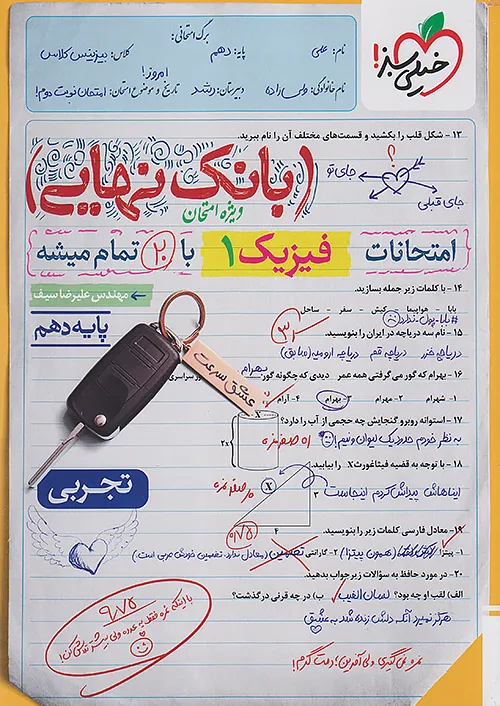 خیلی سبز!
برگ امتحانی:
نام: علی
پایه: دهم
کلاس: بیزینس کلاس
نام خانوادگی: ولی زاده
دبیرستان: رشد
تاریخ و موضوع امتحان: امتحان نوبت دوم!
امروز!
۱۳ - شکل قلب را بکشید و قسمت‌های مختلف آن را نام ببرید.
؟
جای تو
جای قبلی
(بانک نهایی)
ویژه امتحان
امتحانات فیزیک ۱ با ۲۰ تمام میشه
۱۴ - با کلمات زیر جمله بسازید.
مهندس علیرضا سیف
بابا - هواپیما - کیش - سفر - ساحل
#بابا_پول_ندارد
پایه دهم
۱۵ - نام سه دریاچه در ایران را بنویسید.
دریاچه خزر دریاچه قم دریاچه ارومیه (سابق)
۱۶ - بهرام که گور می‌گرفتی همه عمر دیدی که چگونه گور بهرام
سراسری
۱- شهرام ۲- مهرام ۳- بهرام ۴- آرام
عشق سرعت
۱۷ - استوانه روبرو گنجایش چه حجمی از آب را دارد؟
به نظر خودم حدود یک لیوان و نیم!
2x
x
۱۸ - با توجه به قضیه فیثاغورث X را بیابید.
ایناهاش پیداش کردم اینجاست
X
۳
۴
تجربی
۱۹ - معادل فارسی کلمات زیر را بنویسید.
۱- پیتزا (همون پیتزا) ۲- گارانتی تضمین (معادل ندارد. تضمین خودش عربی است.)
۰/۷۵
۲۰ - در مورد حافظ به سؤالات زیر جواب بدهید.
الف) لقب او چه بود؟ لسان الغیب ب) در چه قرنی درگذشت؟
هرگز نمیرد آنکه دلش زنده شد به عشق
۹/۷۵
با اینکه نمره فقط یه عدده ولی بیشتر تلاش کن!
نمره نمی‌گیری ولی آفرین؛ دمت گرم!